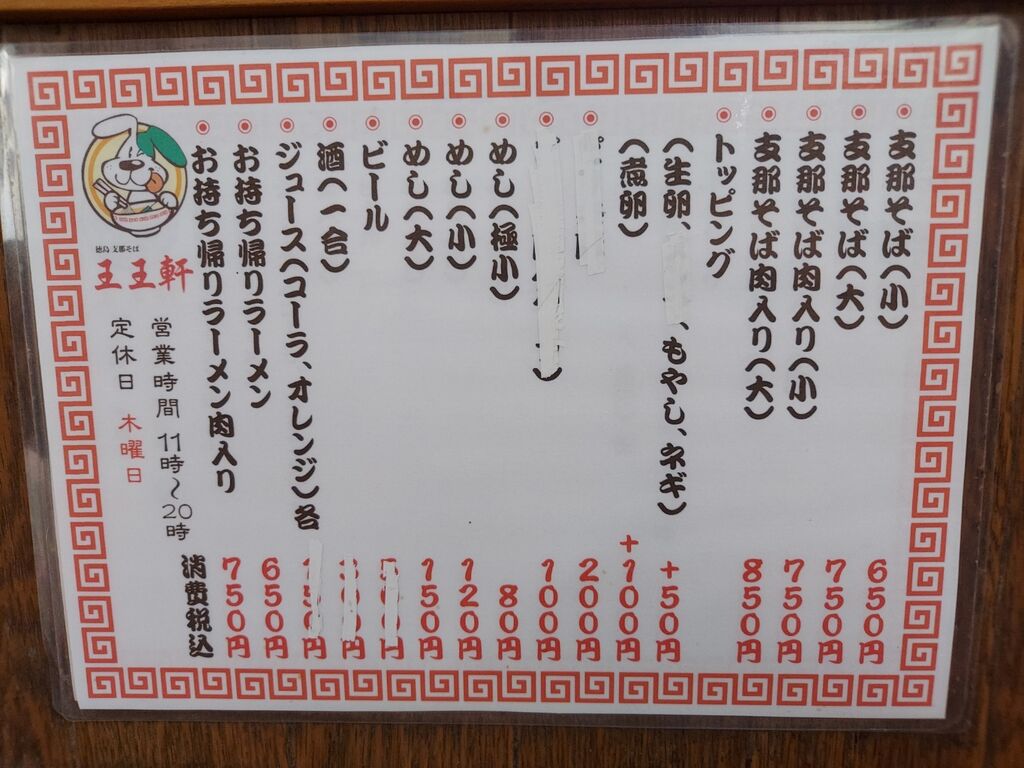 支那そば(小) 650円
支那そば(大) 750円
支那そば肉入り(小) 750円
支那そば肉入り(大) 850円
トッピング
(生卵、 、もやし、ネギ) +50円
(煮卵) +100円
200円
) 100円
めし(極小) 80円
めし(小) 120円
めし(大) 150円
ビール
酒(一合)
ジュース(コーラ、オレンジ)各
お持ち帰りラーメン 650円
お持ち帰りラーメン肉入り 750円
消費税込
徳島 支那そば
王王軒
営業時間 11時~20時
定休日 木曜日